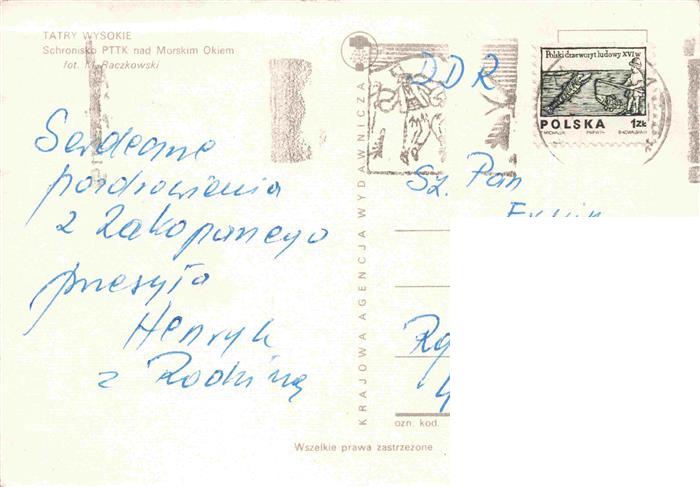 TATRY WYSOKIE
Schronisko PTTK nad Morskim Okiem
fot. M. Raczkowski
Serdeczne
pozdrowienia
z Zakopanego
przesyła
Henryk
z Rodziną
KRAJOWA AGENCJA WYDAWNICZA
DDR
Polski drzeworyt ludowy XVI w
POLSKA 1 ZŁ
Sz. Pan
ozn. kod.
Wszelkie prawa zastrzeżone